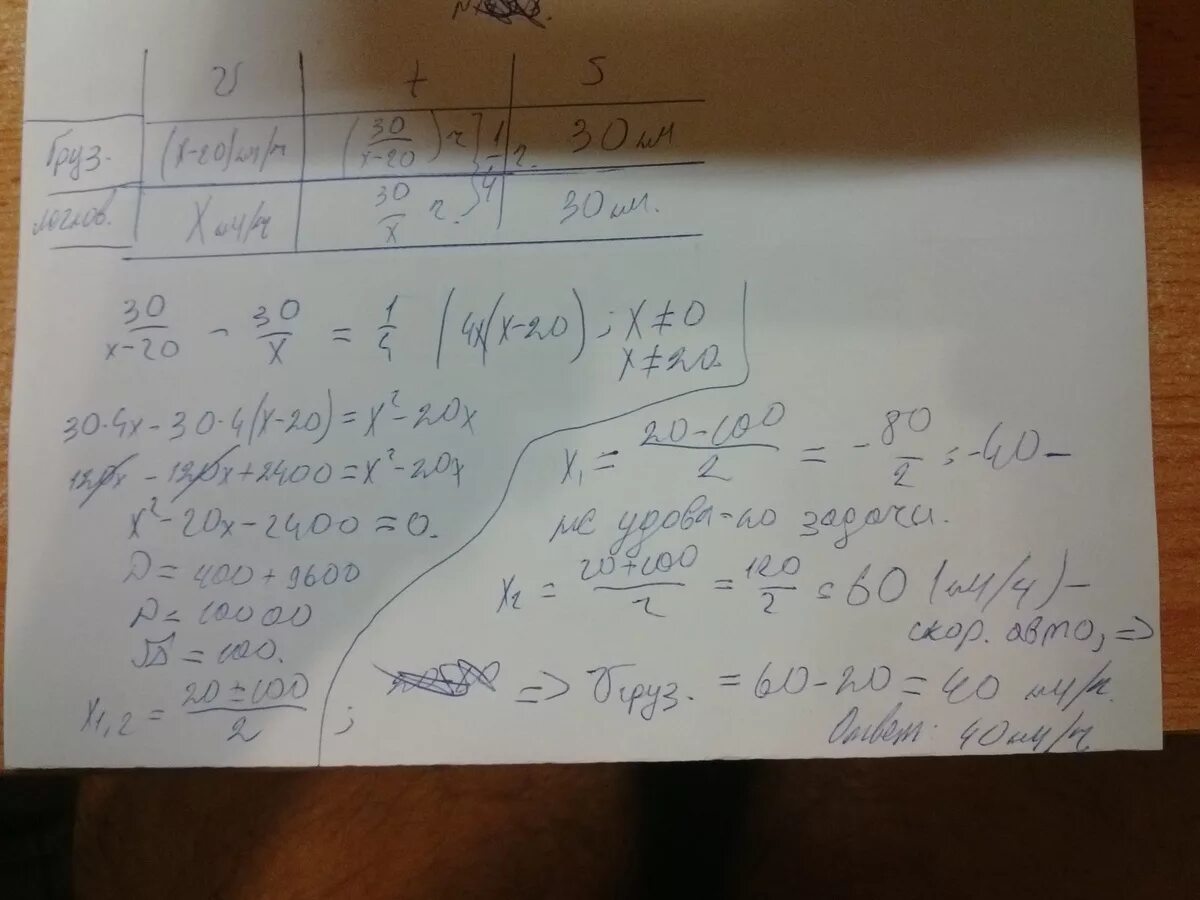 v t S
Груз. (x-20)км/ч (30/(x-20)) ч } 1/4 ч. 30 км
легков. X км/ч 30/x ч. 30 км.
30/(x-20) - 30/x = 1/4 | 4x(x-20) ; x≠0
x≠20.
30·4x - 30·4(x-20) = x²-20x
120x - 120x + 2400 = x²-20x
x²-20x-2400=0.
D = 400+9600
D = 10000
√D = 100.
x1,2 = (20±100)/2 ;
x₁ = (20-100)/2 = -80/2 = -40 –
не удовл-ю задачи.
x₂ = (20+100)/2 = 120/2 = 60 (км/ч) –
скор. авто, =>
=> v груз. = 60-20 = 40 км/ч.
Ответ: 40 км/ч